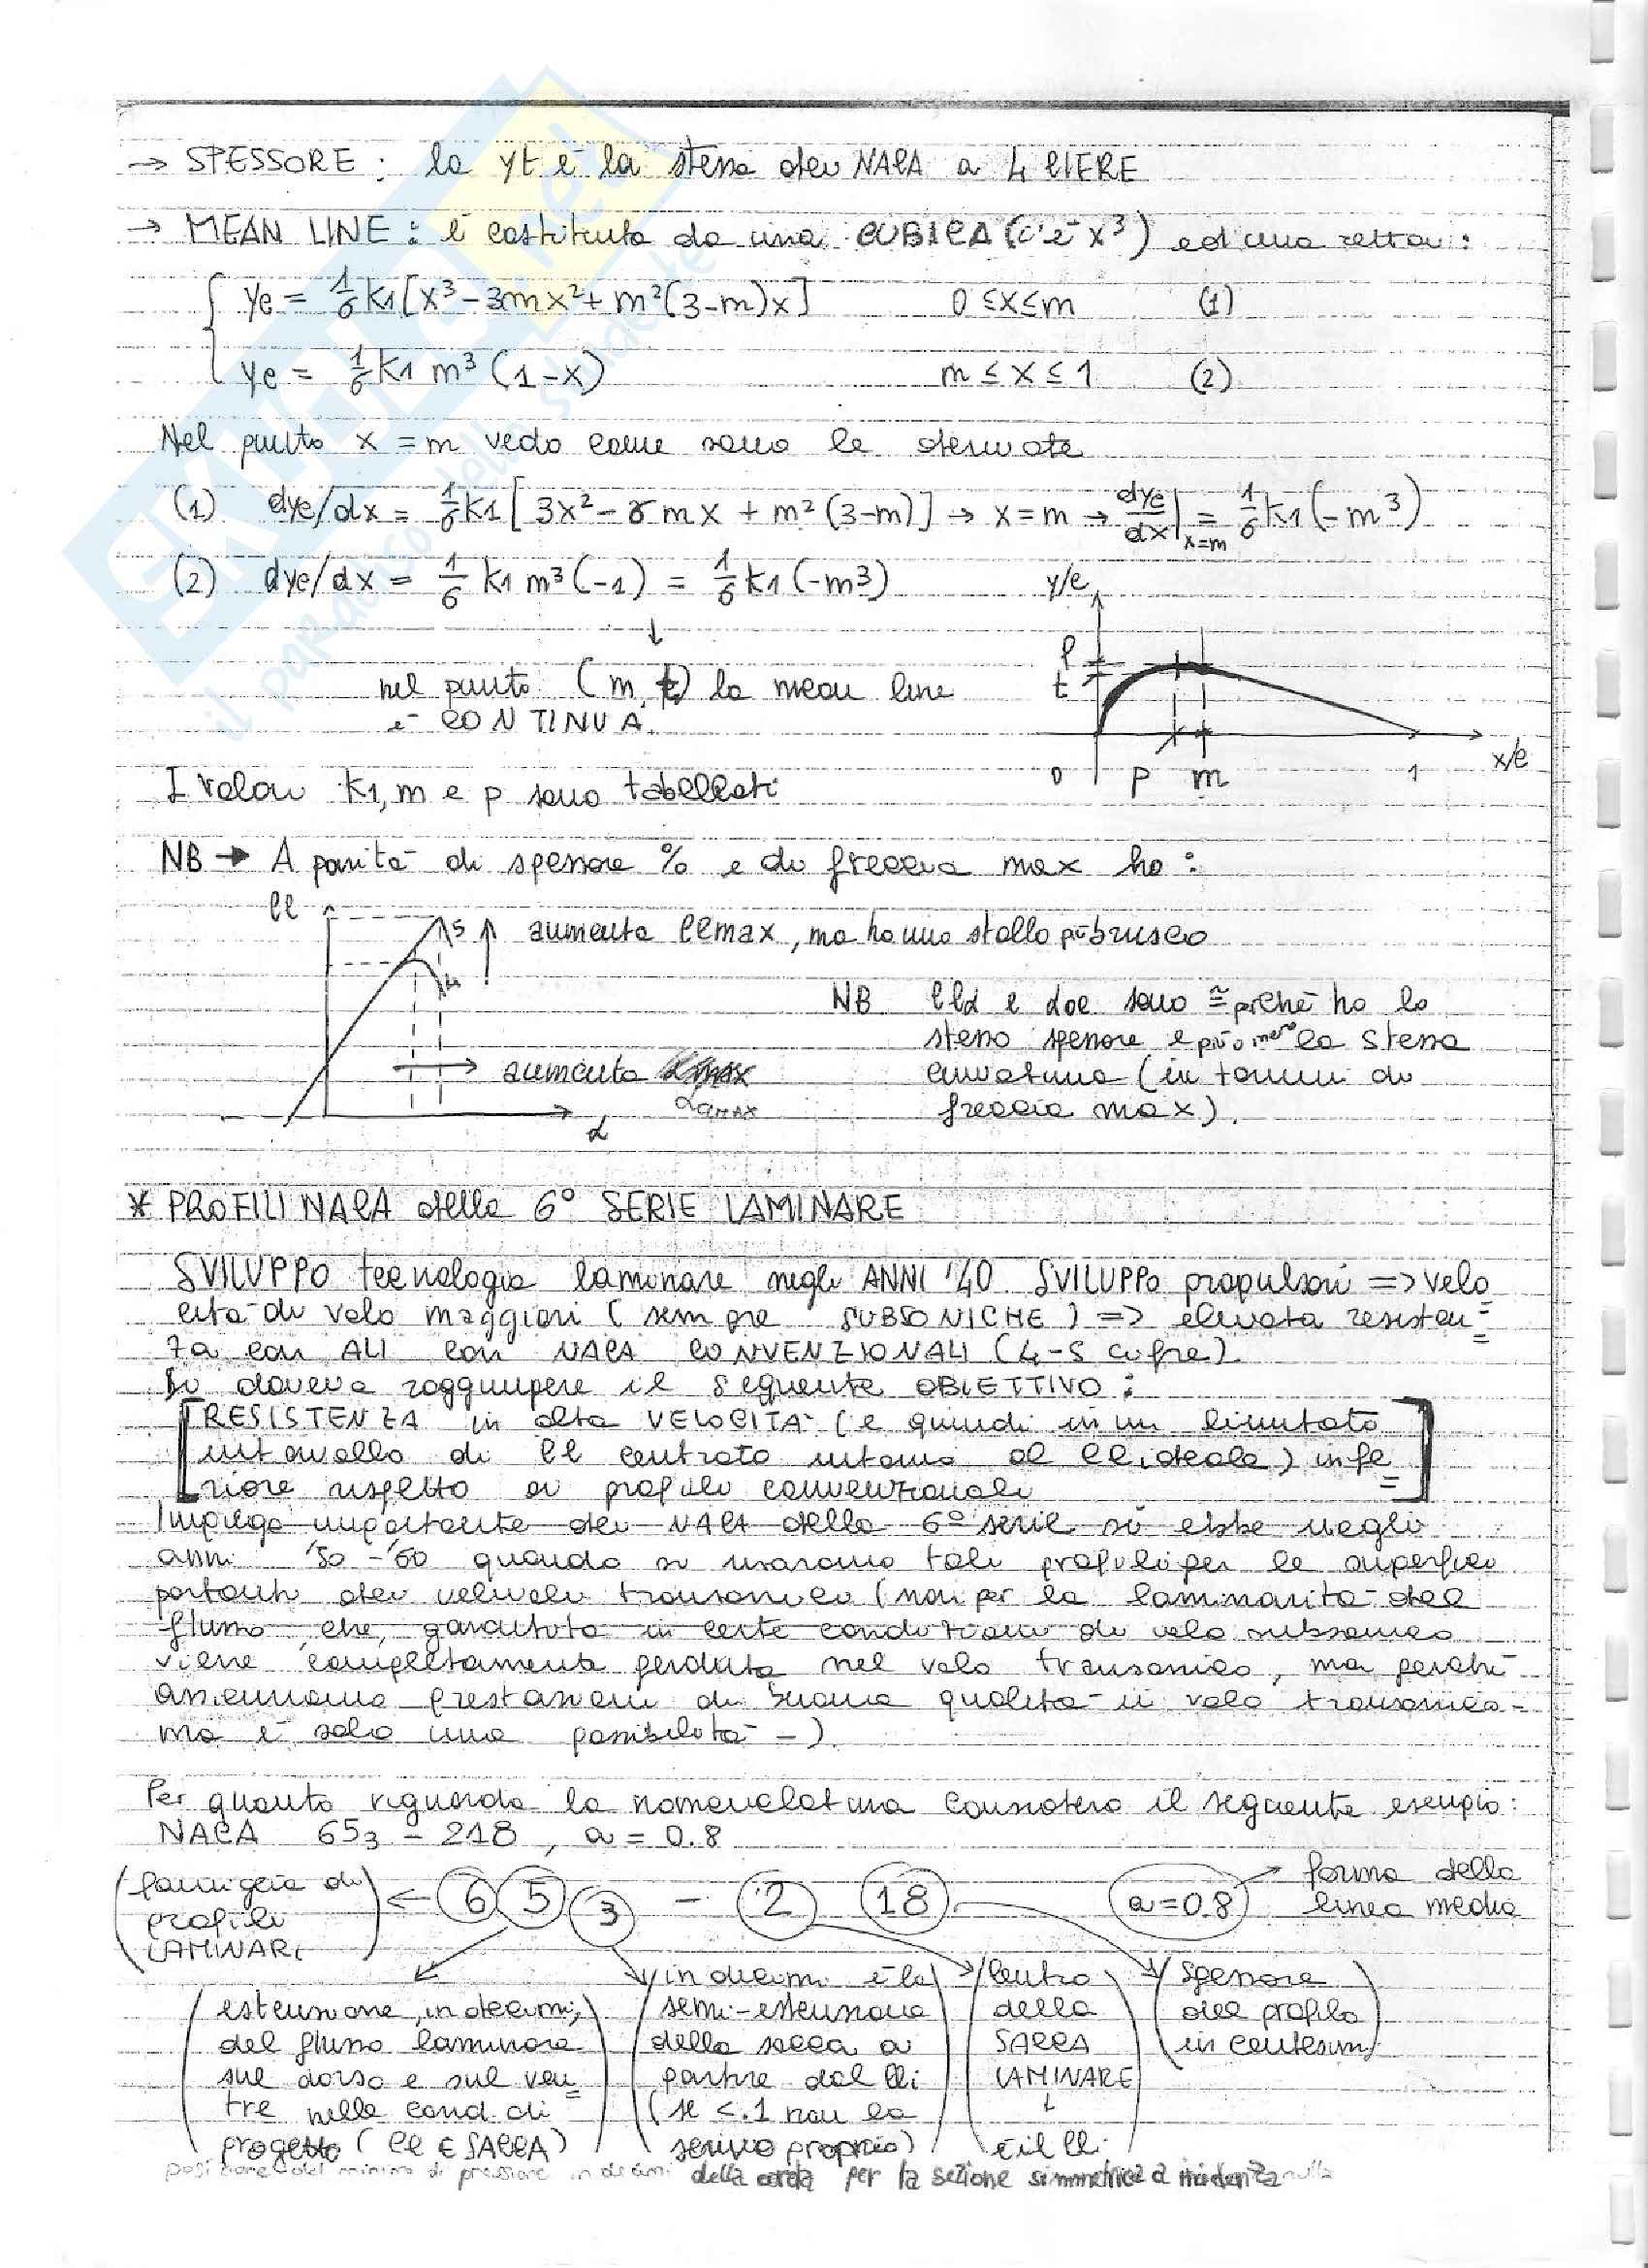 → SPESSORE : la yt è la stessa dei NACA a 4 CIFRE
→ MEAN LINE : è costituita da una CUBICA (c'è x³) ed una retta :
yc = 1/6 k1 [x³ - 3mx² + m²(3-m)x] 0 ≤ x ≤ m (1)
yc = 1/6 k1 m³ (1-x) m ≤ x ≤ 1 (2)
Nel punto x = m vedo come sono le derivate
(1) dyc/dx = 1/6 k1 [3x² - 6mx + m²(3-m)] → x = m → dyc/dx|x=m = 1/6 k1 (-m³)
(2) dyc/dx = 1/6 k1 m³ (-1) = 1/6 k1 (-m³)
↓
y/c
f
t
0 p m 1 x/c
nel punto (m, t) la mean line
è CONTINUA.
I valori k1, m e p sono tabellati
NB → A parità di spessore % e di freccia max ho :
cl
5 ↑ aumenta clmax, ma ho uno stallo più brusco
4
NB clα e αoe sono ≅ perché ho lo
stesso spessore e più o meno la stessa
curvatura (in termini di
freccia max).
→ aumenta
αamax
α
* PROFILI NACA della 6° SERIE LAMINARE
SVILUPPO tecnologia laminare negli ANNI '40. SVILUPPO propulsori => velo
cità di volo maggiori (sempre SUBSONICHE) => elevata resisten
za con ALI con NACA CONVENZIONALI (4-5 cifre).
Si doveva raggiungere il seguente OBIETTIVO :
[RESISTENZA in alta VELOCITÀ (e quindi in un limitato
intervallo di cl centrato intorno al cl ideale) infe
riore rispetto ai profili convenzionali]
Impiego importante dei NACA della 6° serie si ebbe negli
anni '50 - '60 quando si usarono tali profili per le superfici
portanti dei velivoli transonici (non per la laminarità del
flusso, che, garantita in certe condizioni di volo subsonico
viene completamente perduta nel volo transonico, ma perché
assicurano prestazioni di buona qualità in volo transonico -
ma è solo una possibilità -).
Per quanto riguarda la nomenclatura considero il seguente esempio :
NACA 65₃ - 218 , a = 0.8
(famiglia di profili LAMINARI) ← 6 5 3 - 2 18 a = 0.8 → forma della linea media
(estensione, in decimi, del flusso laminare sul dorso e sul ventre nelle cond. di progetto (cl ∈ SACCA))
(in decimi è la semi-estensione della sacca a partire dal cli (se < .1 non lo scrivo proprio))
(Centro della SACCA LAMINARE ↓ è il cli)
(Spessore del profilo in centesimi)
posizione del minimo di pressione in decimi della corda per la sezione simmetrica a incidenza nulla
SKUOLA.net
il paradiso dello studente